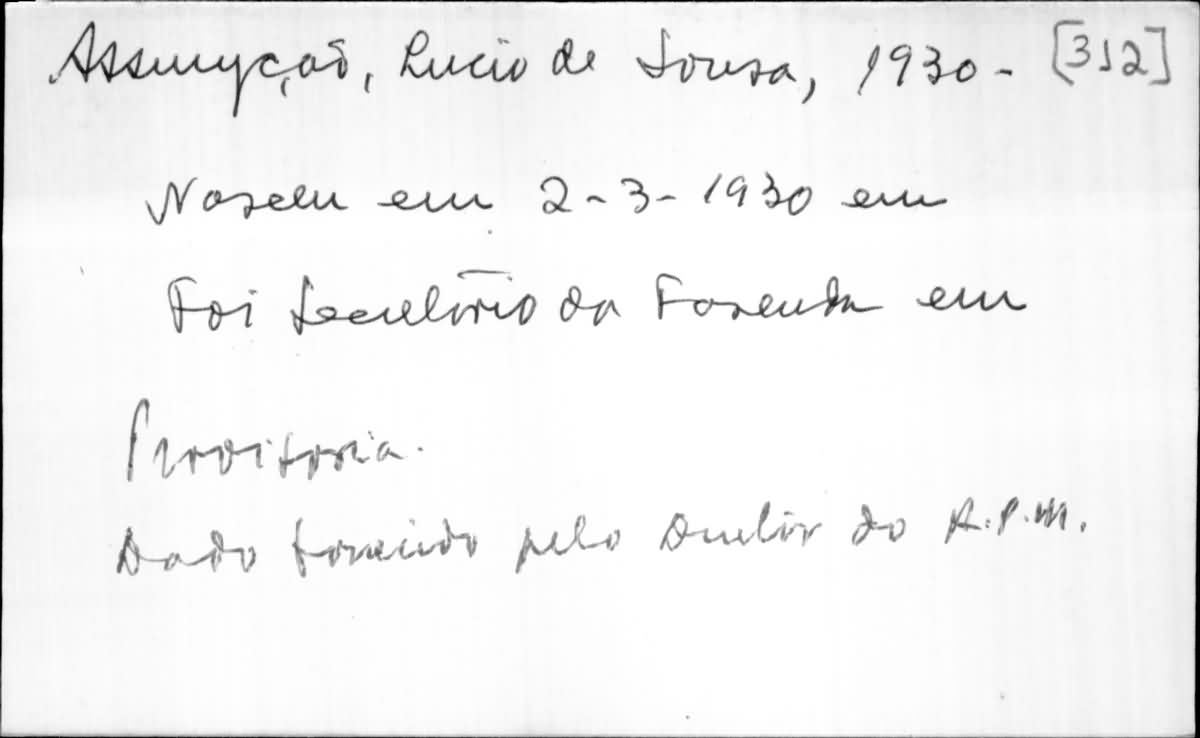 Assumpção, Lucio de Sousa, 1930- [312]
Nasceu em 2-3-1930 em
Foi Secretário da Fazenda em
Provisoria.
Dado fornecido pelo Diretor do A.P.M.